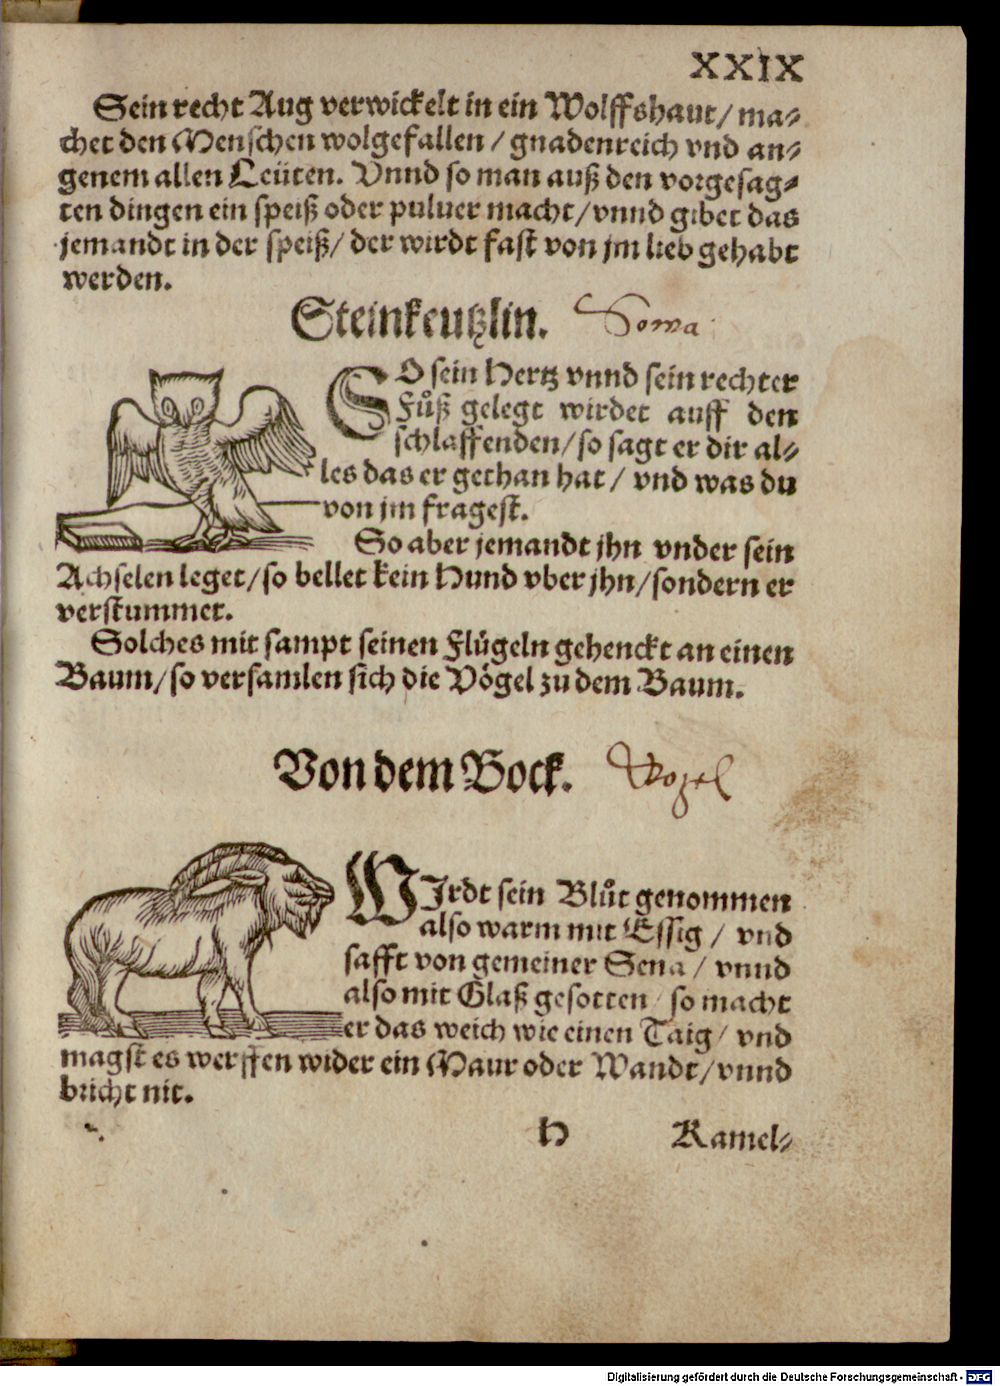 XXIX
Sein recht Aug verwickelt in ein Wolffshaut/ ma⸗
chet den Menschen wolgefallen / gnadenreich vnd an⸗
genem allen Leüten. Vnnd so man auß den vorgesag⸗
ten dingen ein speiß oder puluer macht/ vnnd gibet das
jemandt in der speiß/ der wirdt fast von jm lieb gehabt
werden.
Steinkeutzlin. Sowa
SO sein Hertz vnnd sein rechter
Fůß gelegt wirdet auff den
schlaffenden/ so sagt er dir al⸗
les das er gethan hat / vnd was du
von jm fragest.
So aber jemandt jhn vnder sein
Achselen leget/ so bellet kein Hund vber jhn/ sondern er
verstummet.
Solches mit sampt seinen Flügeln gehenckt an einen
Baum/ so versamlen sich die Vögel zu dem Baum.
Von dem Bock. Kozel
WIrdt sein Blůt genommen
also warm mit Essig / vnd
safft von gemeiner Sena / vnnd
also mit Glaß gesotten / so macht
er das weich wie einen Taig / vnd
magst es werffen wider ein Maur oder Wandt/ vnnd
bricht nit.
H Kamel⸗
Digitalisierung gefördert durch die Deutsche Forschungsgemeinschaft - DFG